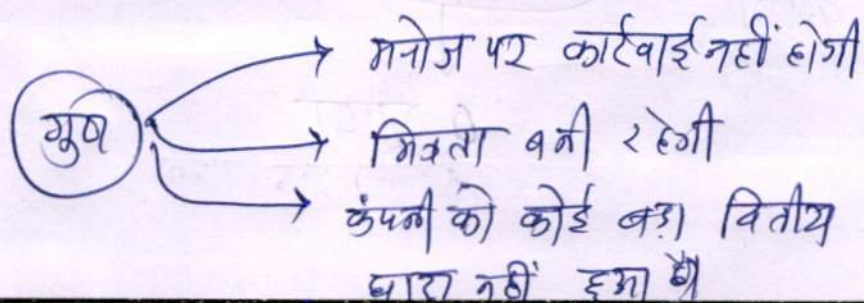 मनोज पर कार्रवाई नहीं होगी
गुण
मित्रता बनी रहेगी
कंपनी को कोई बड़ा वित्तीय
घाटा नहीं हुआ है